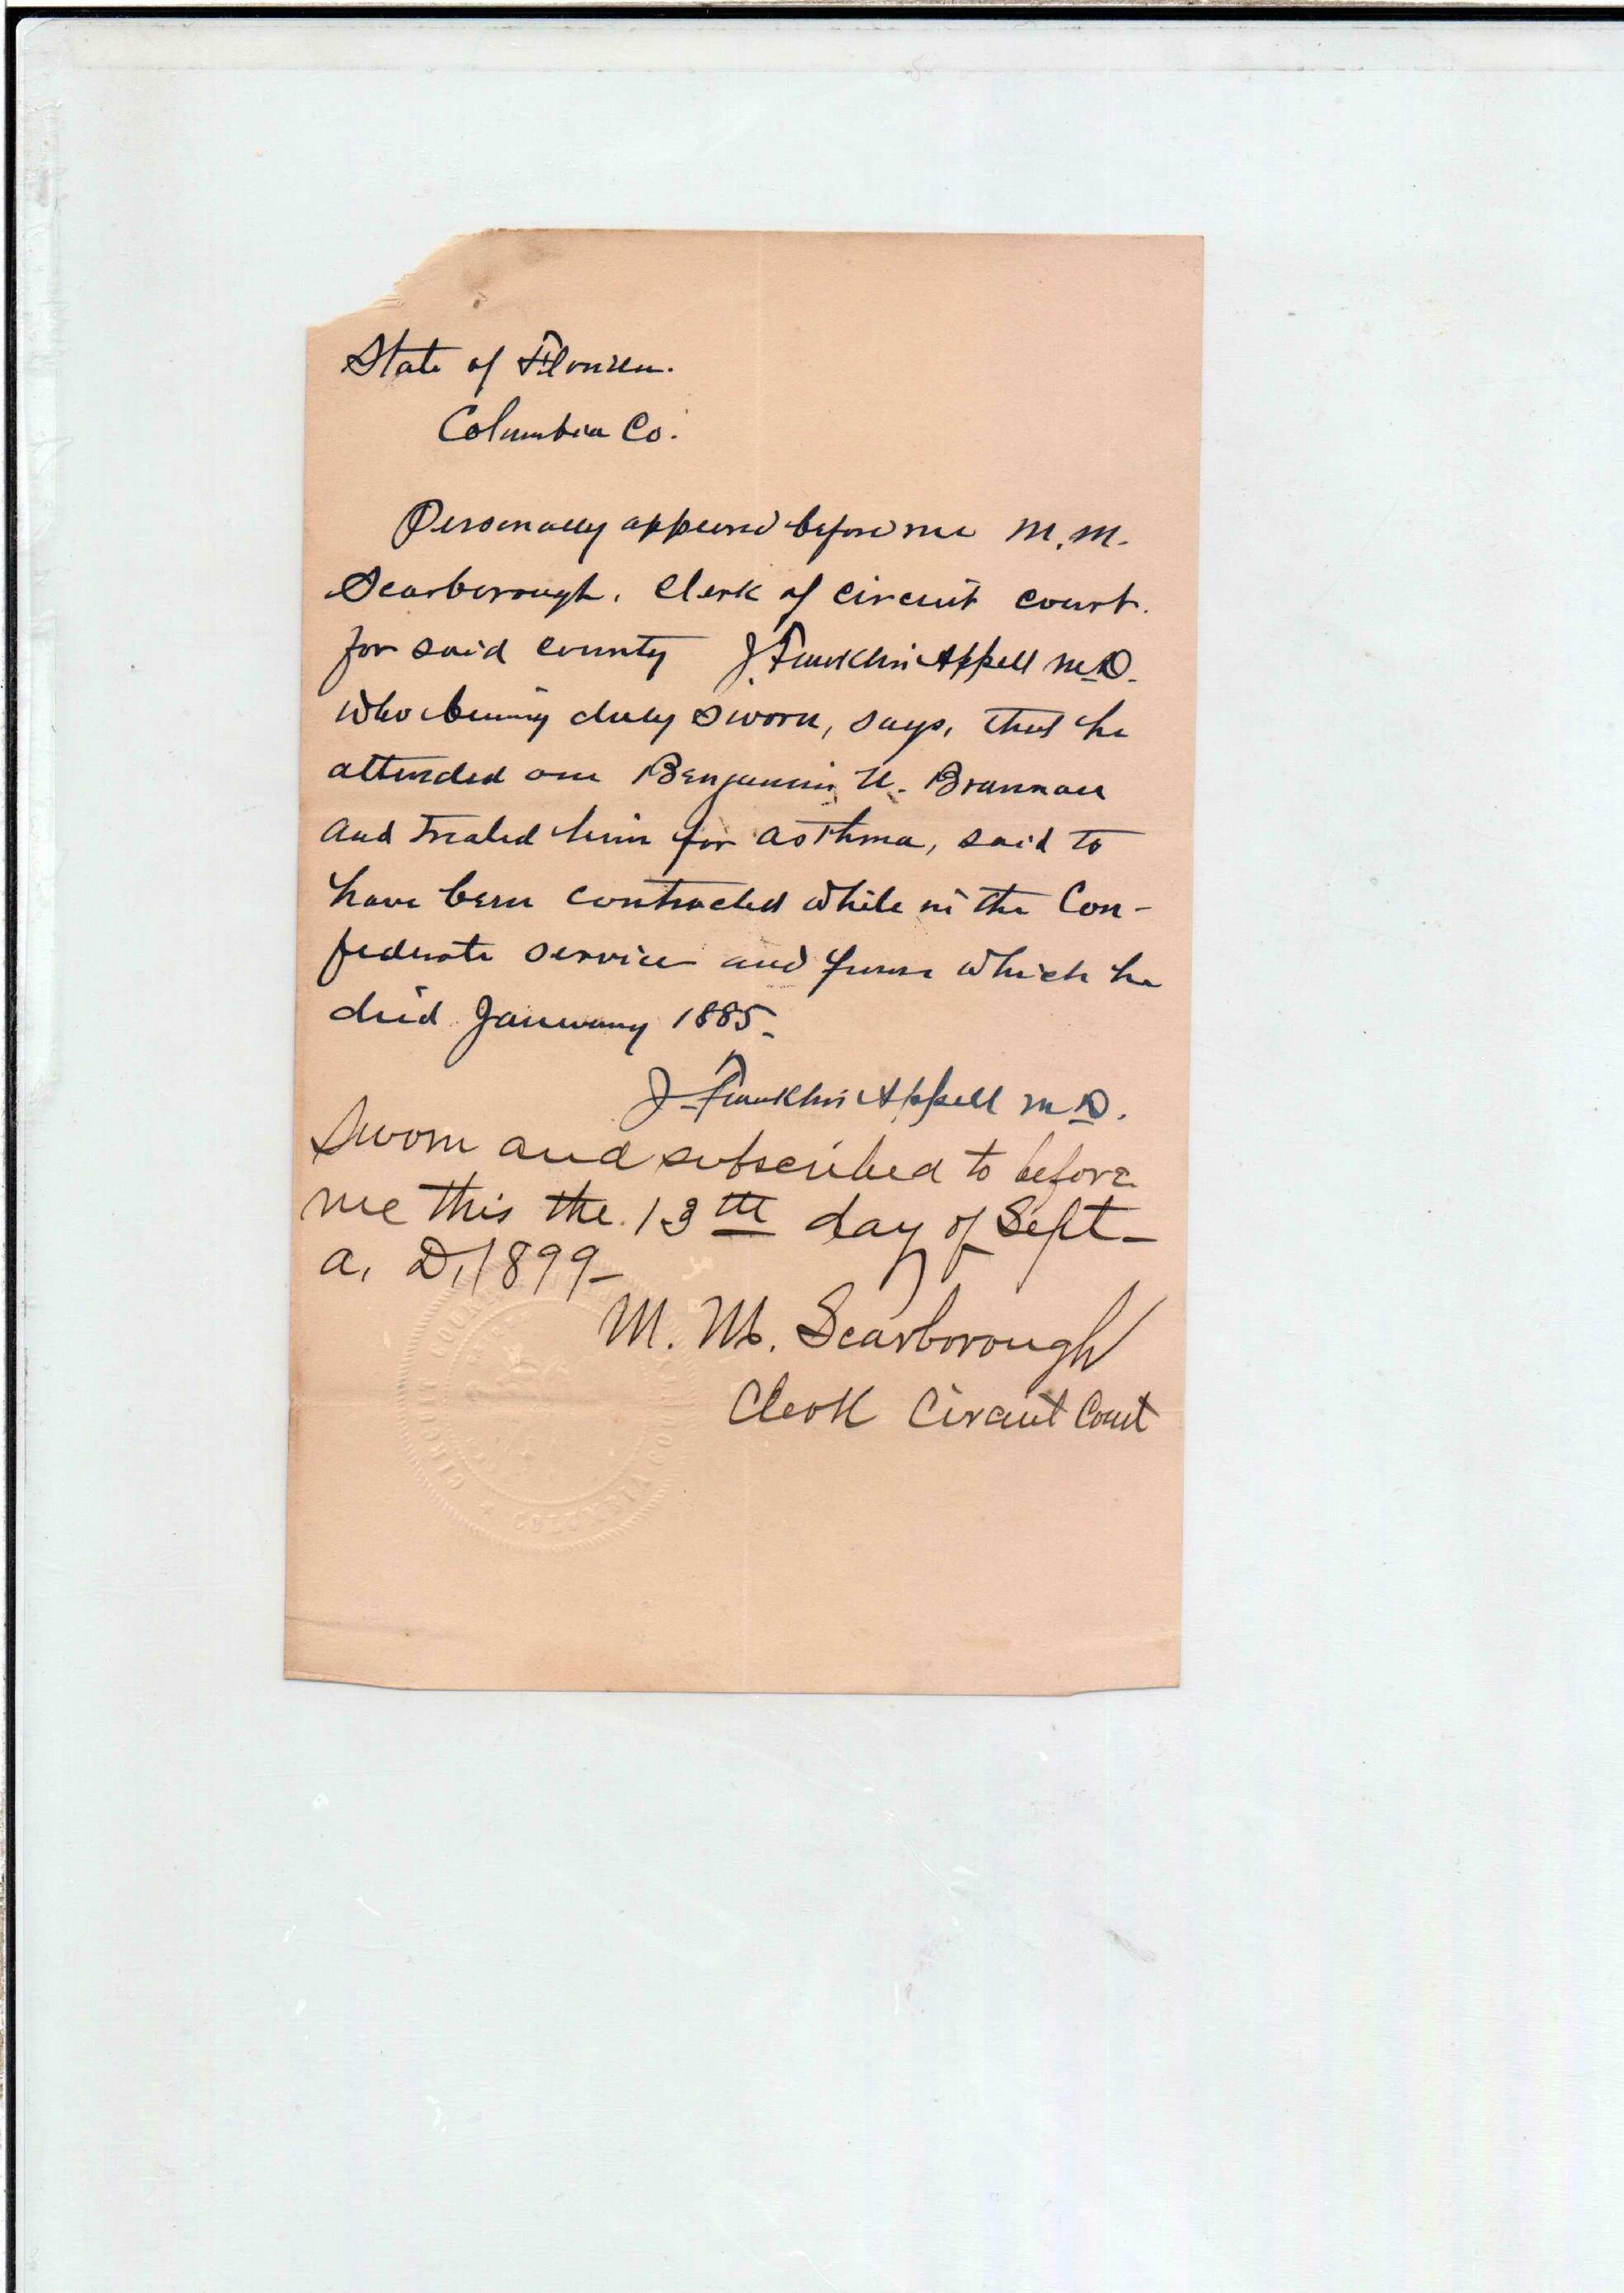 State of Florida.
Columbia Co.
Personally appeared before me M. M.
Scarborough, Clerk of Circuit Court.
for said County J. Franklin Appell M.D.
who being duly sworn, says, that he
attended one Benjamin Brannan
and treated him for asthma, said to
have been contracted while in the Con-
federate service and from which he
died January 1885.
J. Franklin Appell M.D.
Sworn and subscribed to before
me this the 13th day of Sept-
A. D. 1899-
M. M. Scarborough
Clerk Circuit Court
CIRCUIT COURT
COLUMBIA COUNTY